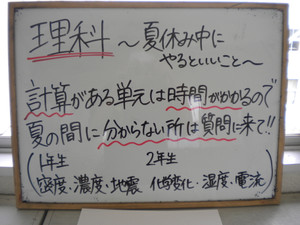 理科 ～夏休み中に
やるといいこと～
計算がある単元は時間がかかるので
夏の間に分からない所は質問に来て!!
1年生 2年生
(密度・濃度・地震 化学変化・湿度・電流)